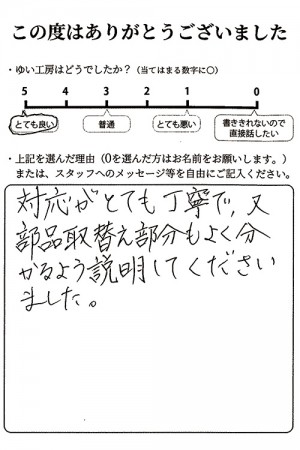 この度はありがとうございました
・ゆい工房はどうでしたか？（当てはまる数字に○）
5 4 3 2 1 0
とても良い 普通 とても悪い 書ききれないので
直接話したい
・上記を選んだ理由（0を選んだ方はお名前をお願いします。）
または、スタッフへのメッセージ等を自由にご記入ください。
対応がとても丁寧で、又
部品取替え部分もよく分
かるよう説明してください
ました。